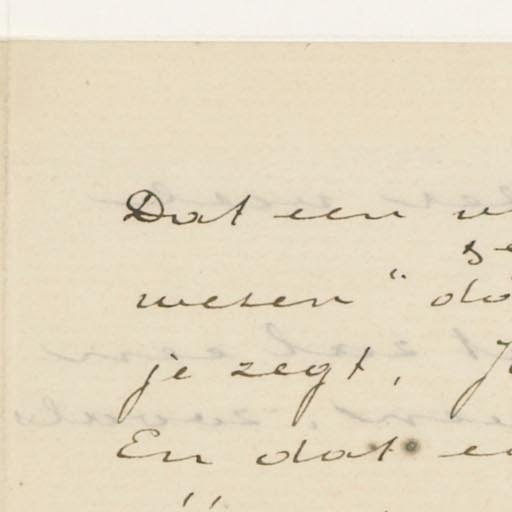 Dat een
wesen" do
je zegt,
En dat